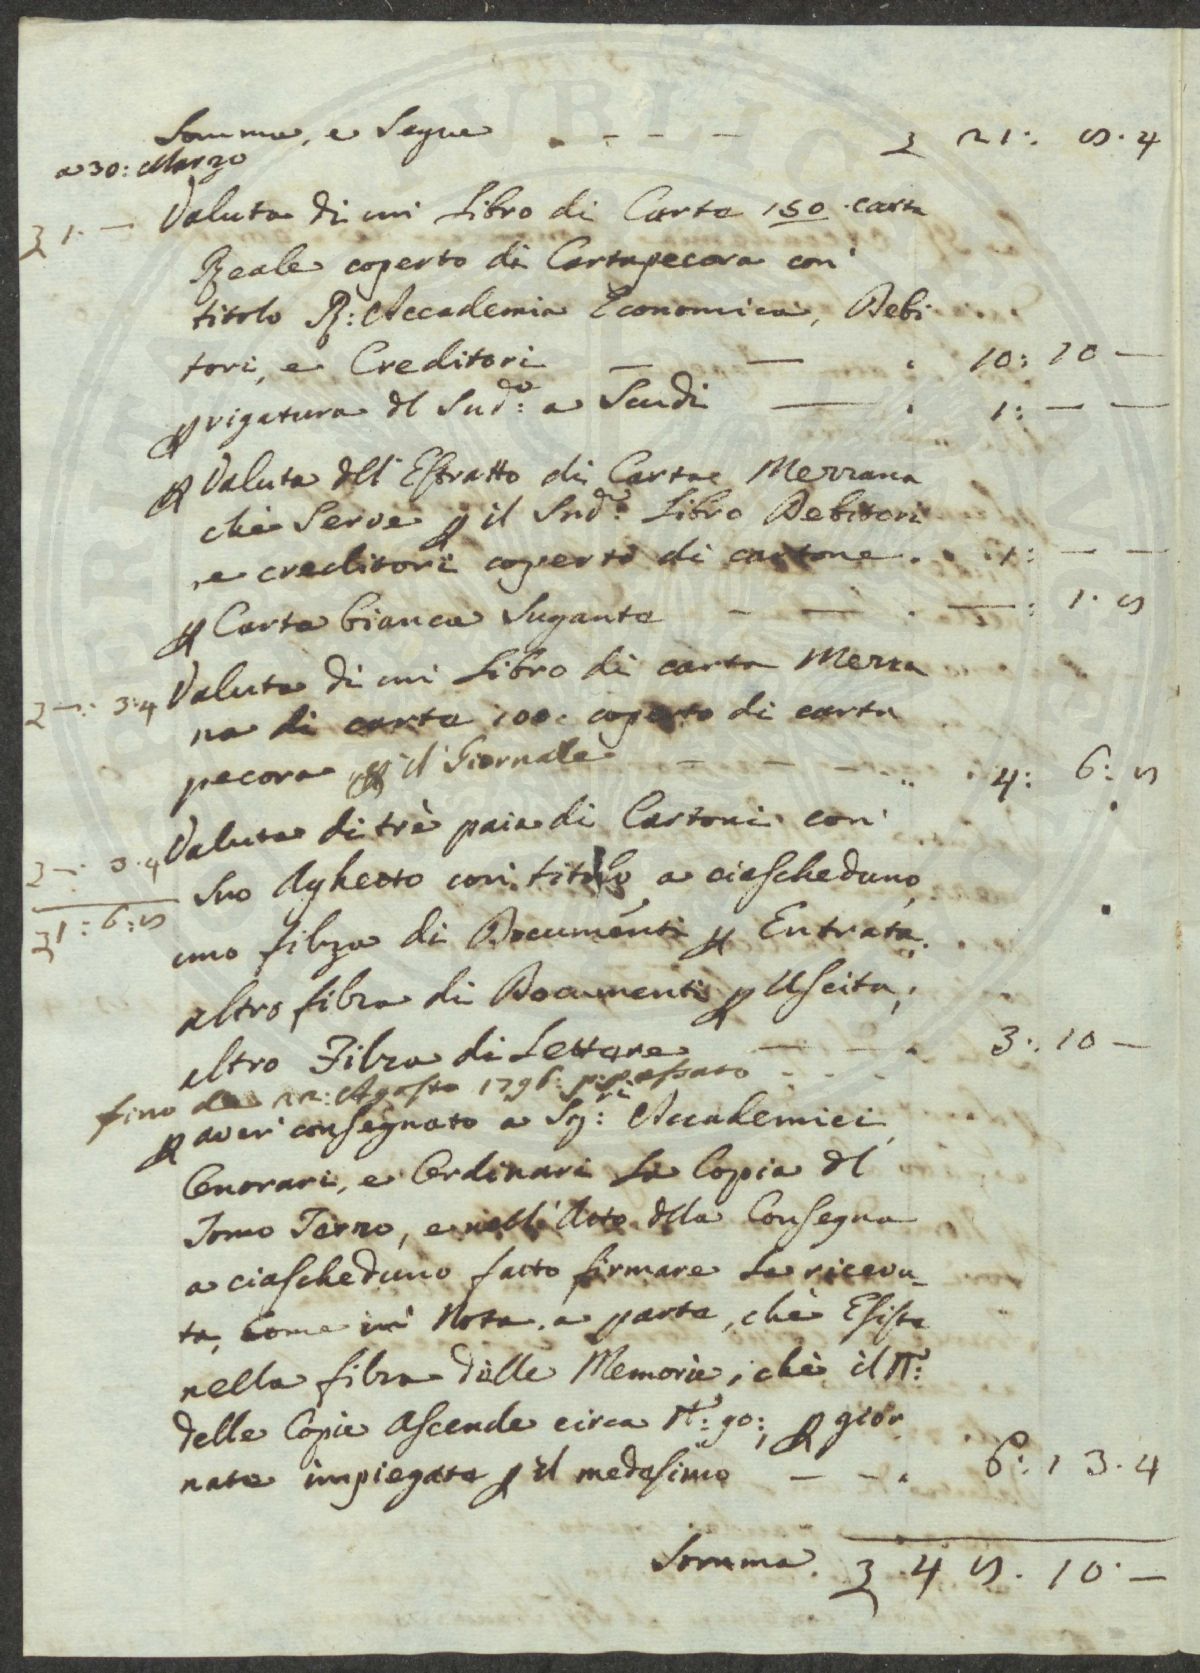 Somma, e Segue - - - - ꝫ 21: 8·4
a 30: Marzo
ꝫ 1·— Valuta di un Libro di Carte 150 · carta
Reale coperto di Cartapecora con
titolo R: Accademia Economica, Debi
tori, e Creditori — — · 10: 10 —
ꝑ rigatura dl Sud:º a Scudi — · 1: — —
ꝑ Valuta dll' Estratto di Carta Mezzana
chè Serve ꝑ il Sud:º Libro Debitori
e creditori coperto di cartone · · 1: — —
ꝑ Carta bianca Sugante - — · —: 1· 8
ꝫ —: 3·4 Valuta di un Libro di carta Mezza
na di carte 100. coperto di carta
pecora ꝑ il Giornale - - - · 4: 6: 8
ꝫ —· 3·4 Valuta di trè paia di Cartoni con
Suo Aghetto con titolo a ciascheduno,
ꝫ 1: 6: 8
uno filza di Documenti ꝑ Entrata,
altro filza di Documenti ꝑ Uscita,
altro Filza di Lettere — - - · 3: 10 —
fino da 22: Agosto 1796: p:passato - - -
ꝑ aver consegnato a Sig:ri Accademici
Onorari, e Ordinari La Copia dl
Tomo Terzo, e nell' Atto dlla Consegna
a ciascheduno fatto firmare La ricevu_
ta, Come in Nota, a parte, chè Esiste
nella filza dèlle Memorie, chè il N:º
delle Copie Ascende circa N:º 90:, ꝑ gior
nate impiegate ꝑ il medesimo — - - · 6: 13·4
Somma. ꝫ 48· 10· —